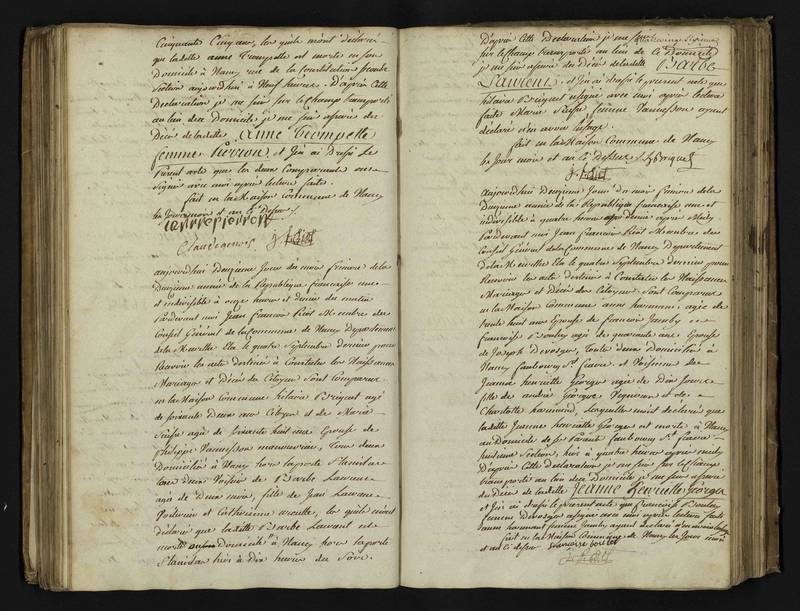 Cinquante Cinq ans, les quels m'ont déclaré
que ladite anne Trompette est morte en son
Domicile à Nancy, rue de la Constitution
Section aujourdhui à Neuf heures. D'après Cette
Declaration je me suis sur le Champ transporté
au lieu du Domicile je me suis assuré du
Décès de ladite Anne Trompette
femme Pierron, et J'ai ai Dressé le
Présent acte que les deux Comparants ont
Signé avec moi après lecture faite.
fait en la Maison Commune de Nancy
les Jour mois et an Cy Dessus.
pierron
aujourdhui Douzieme Jour du mois frimaire de la
Douzieme année de la Republique francaise une
et indivisible à onze heures et demie du matin
Pardevant moi Jean francois Membre du
Conseil Général de la Commune de Nancy Departement
de la Meurthe Elu le quatre Septembre dernier pour
Recevoir les actes destinés à Constater les Naissances
Mariages et Décès des Citoyens Sont Comparus
en la Maison Commune hilaire Briquet agé
de soixante Deux ans Citoyen et de Marie
agée de soixante huit ans Epouse de
philippe manoeuvre, Tous deux
Domiciliés à Nancy hors la porte Stanislas
tous deux Voisins de Barbe Laurent
agée de Deux mois, fille de Jean Laurent
Voiturier et Catherine les quels m'ont
déclaré que ladite Barbe Laurent est
morte Domicile à Nancy hors la porte
Stanislas hier à Dix heures du Soir.
D'après Cette Declaration je me suis
sur le Champ transporté au lieu de Ce Domicile
je me suis assuré du Décès de ladite Barbe
Laurent, et J'ai ai dressé le present acte que
hilaire Briquet a signé avec moi après lecture
faite Marie femme ayant
déclaré n'en avoir l'usage.
fait en la Maison Commune de Nancy
les Jour mois et an Cy Dessus. h Briquet
aujourdhui Douzieme Jour du mois frimaire de la
Douzieme année de la Republique francaise une et
indivisible à quatre heures Demie après Midy.
Pardevant moi Jean francois Membre du
Conseil Général de la Commune de Nancy Departement
de la Meurthe Elu le quatre Septembre dernier pour
Recevoir les actes destinés à Constater les Naissances
Mariages et Décès des Citoyens Sont Comparus
en la Maison Commune anne harmant, agée de
trente huit ans Epouse de francois Jamby et
francoise Bouley agée de quarante ans Epouse
de Joseph Devosges, toute deux Domiciliées à
Nancy faubourg St fiacre. et Voisines de
Jeanne henriette Georges agée de
fille de andré Georges Vigneron et de
Charlotte harmand, Lesquelles m'ont déclaré que
ladite Jeanne henriette Georges est morte à Nancy
au Domicile de ses Parents faubourg St fiacre
huitieme Section, hier à quatre heures après midy
D'après Cette déclaration je me suis sur le Champ
transporté au lieu du Domicile je me suis assuré
du Décès de ladite Jeanne Henriette Georges
et J'ai ai dressé le present acte que francoise Bouley
femme Devosges a signé avec moi après lecture faite
anne harmant femme Jamby, ayant declaré n'en avoir l'usage
fait en la Maison Commune de Nancy les Jour mois
et an Cy dessus francoise boulet